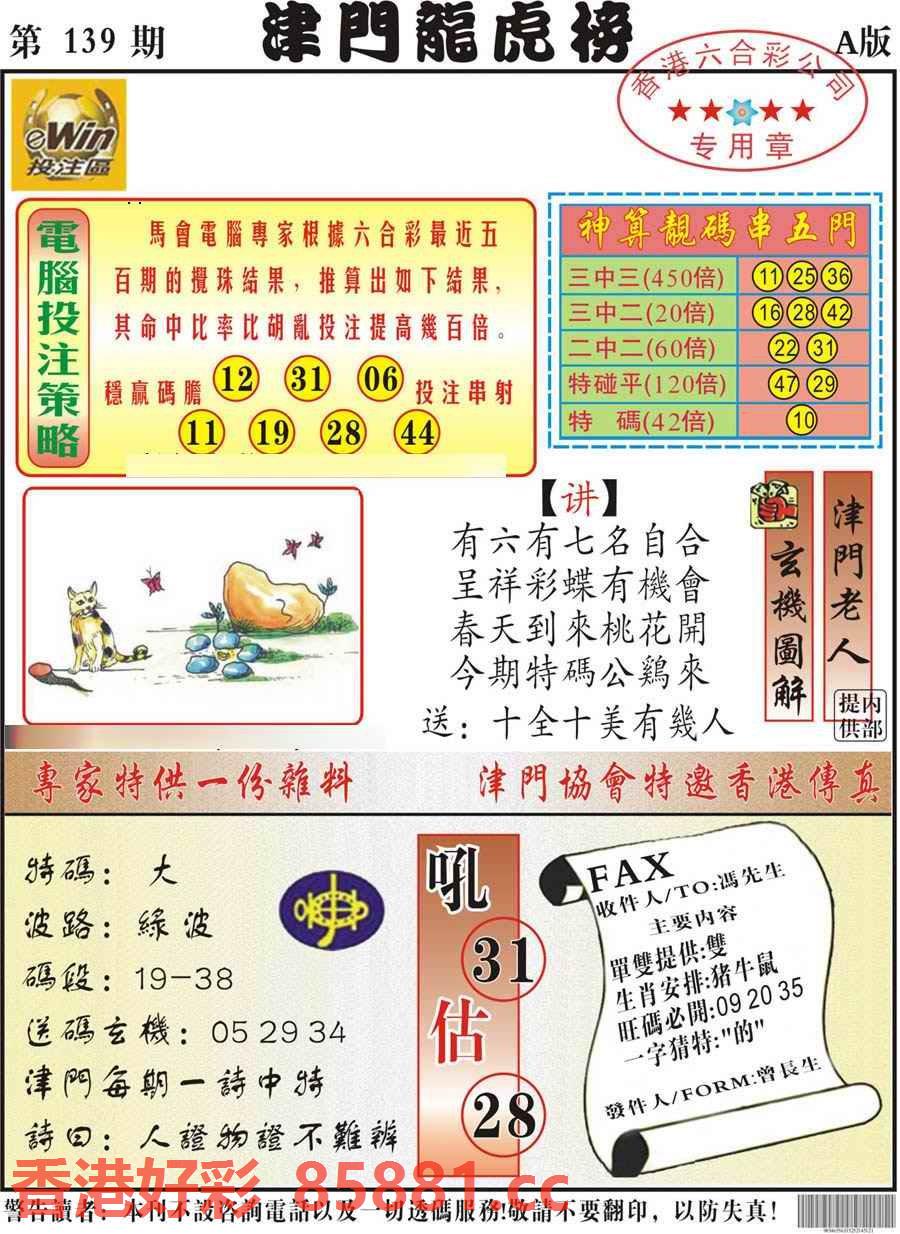 第 139 期
津門龍虎榜
A版
香港六合彩公司
专用章
eWin
投注區
電腦投注策略
馬會電腦專家根據六合彩最近五
百期的攪珠結果，推算出如下結果，
其命中比率比胡亂投注提高幾百倍。
穩贏碼膽 12 31 06 投注串射
11 19 28 44
神算靚碼串五門
三中三(450倍) 11 25 36
三中二(20倍) 16 28 42
二中二(60倍) 22 31
特碰平(120倍) 47 29
特 碼(42倍) 10
【讲】
有六有七名自合
呈祥彩蝶有機會
春天到來桃花開
今期特碼公鷄來
送：十全十美有幾人
玄機圖解
津門老人
内部提供
專家特供一份雜料
津門協會特邀香港傳真
特碼： 大
波路：綠波
碼段：19-38
送碼玄機：05 29 34
津門每期一詩中特
詩曰：人證物證不難辨
吼
31
估
28
FAX
收件人/TO:馮先生
主要内容
單雙提供:雙
生肖安排:猪牛鼠
旺碼必開:09 20 35
一字猜特:"的"
發件人/FORM:曾長生
香港好彩 85881.cc
警告讀者：本刊不設咨詢電話以及一切透碼服務!敬請不要翻印，以防失真!